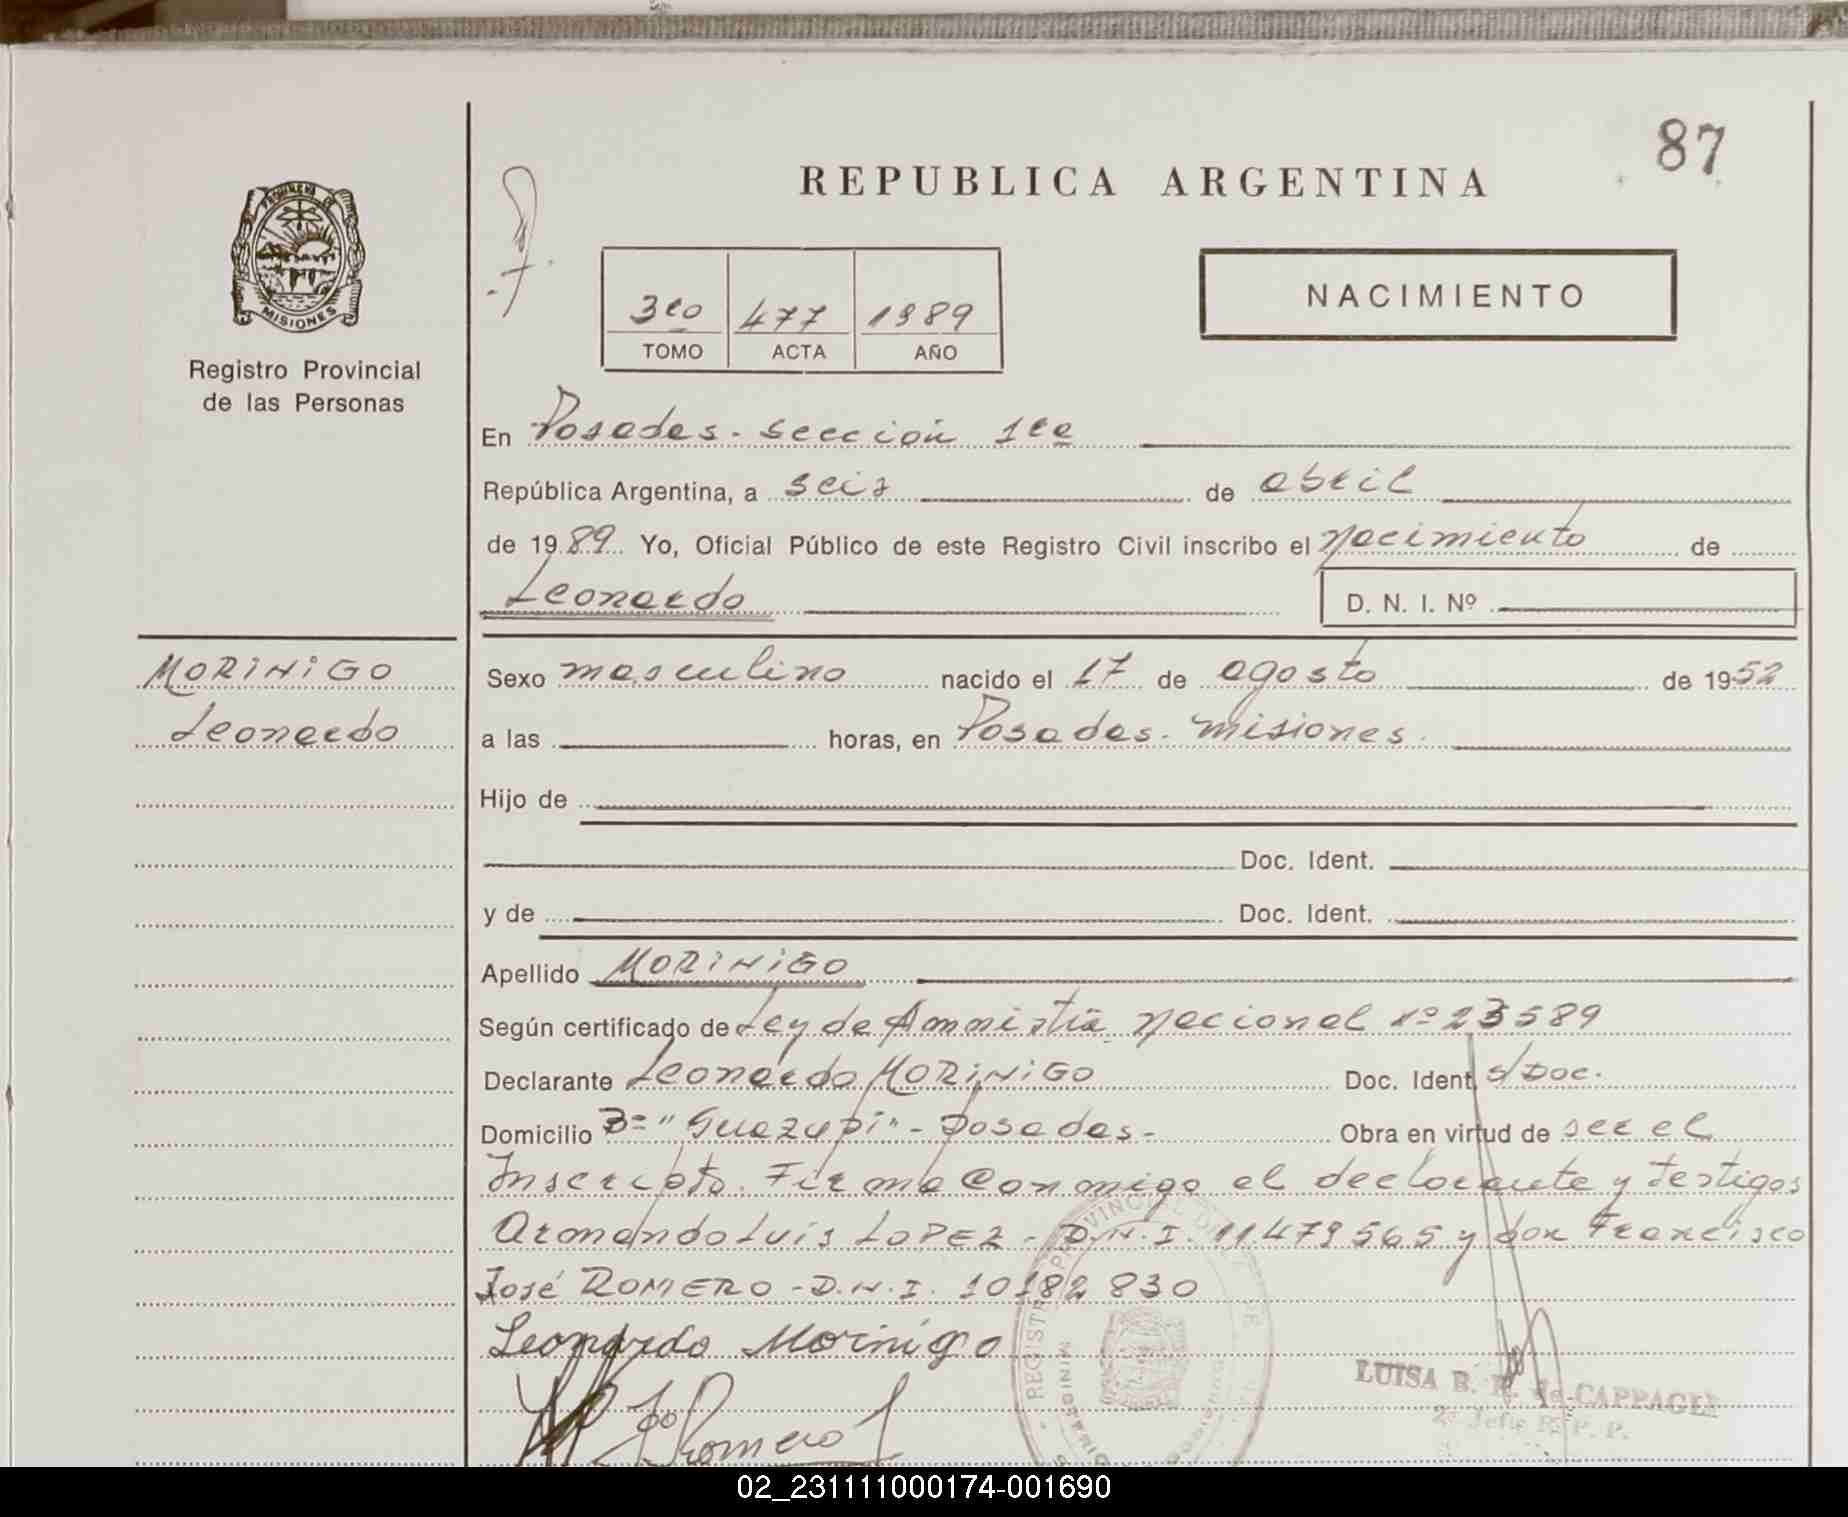 87
REPUBLICA ARGENTINA
PROVINCIA DE
MISIONES
Registro Provincial
de las Personas
3ro 477 1989
TOMO ACTA AÑO
NACIMIENTO
En Posadas - Sección 1ra
República Argentina, a seis de abril
de 1989 Yo, Oficial Público de este Registro Civil inscribo el nacimiento de
Leonardo D. N. I. Nº
MORINIGO
Leonardo
Sexo masculino nacido el 17 de agosto de 1952
a las horas, en Posadas - Misiones
Hijo de
Doc. Ident.
y de Doc. Ident.
Apellido MORINIGO
Según certificado de Ley de Amnistía Nacional Nº 23589
Declarante Leonardo MORINIGO Doc. Ident. s/Doc.
Domicilio Bº "Guazupí" - Posadas - Obra en virtud de ser el
Inscripto. Firma Conmigo el declarante y testigos
Armando Luis LOPEZ - D.N.I. 11479565 y don Francisco
José ROMERO - D.N.I. 10182830
Leonardo Morinigo
Romero
LUISA B. R. de CAPPAGLI
2º Jefe R. P. P.
02_231111000174-001690